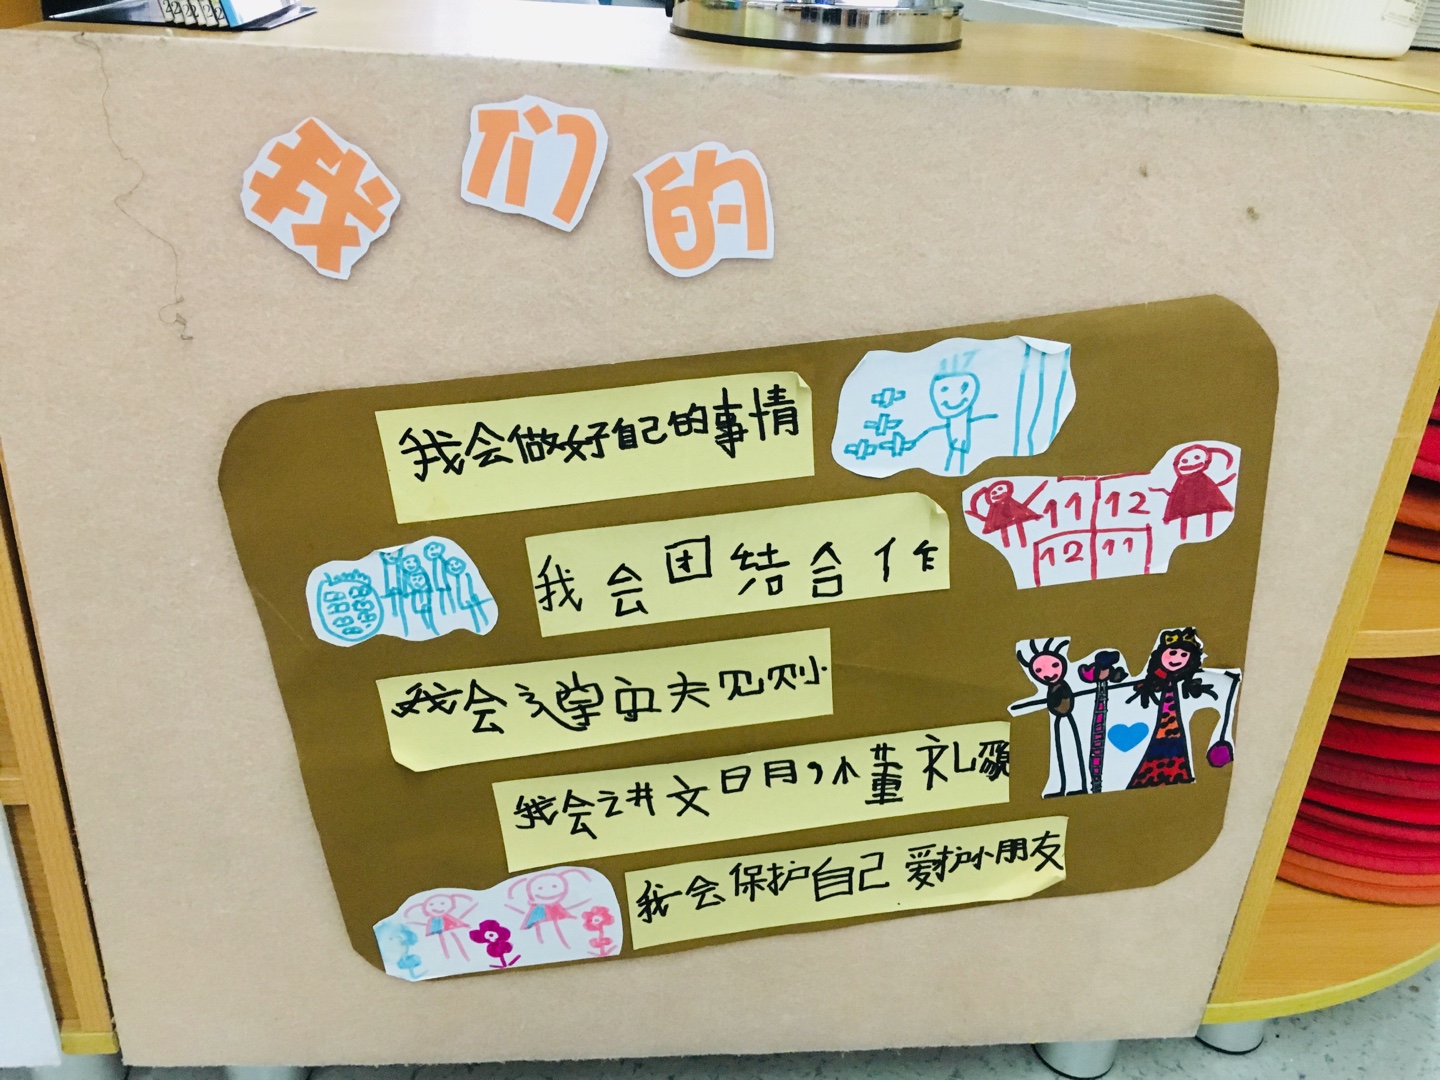 我们的
我会做好自己的事情
11 12
12 11
我会团结合作
我会遵守规则
我会讲文明,懂礼貌
我会保护自己 爱护小朋友